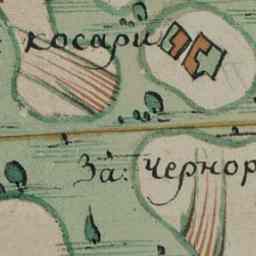 косари
За: чернор